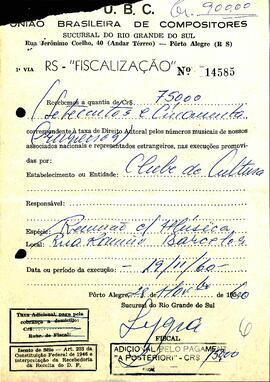 U. B. C. Cr. 900,00
UNIÃO BRASILEIRA DE COMPOSITORES
SUCURSAL DO RIO GRANDE DO SUL
Rua Jerônimo Coelho, 40 (Andar Térreo) — Pôrto Alegre (R S)
1ª VIA RS - "FISCALIZAÇÃO" Nº 14585
Recebemos a quantia de Cr$ 750,00
(Setecentos e Cincoenta
Cruzeiros)
correspondente à taxa de Direito Autoral pelos números musicais de nossos
associados nacionais e representados estrangeiros, nas execuções promovidas por:
Estabelecimento ou Entidade: Clube de Cultura
Responsável:
Espécie: Reunião c/ Música
Local: Rua Ramiro Barcelos
Data ou período da execução: - 19/11/60 -
Pôrto Alegre, de Novbro 1960
Sucursal do Rio Grande do Sul
Taxa Adicional, para cobrança a domicílio:
Cr$
Rubr. do Fiscal
FISCAL
Isento de Sêlo — Art. 203 da
Constituição Federal de 1946 e
interpretação da Recebedoria
da Receita do D. F.
ADICIONAL PELO PAGAMENTO
"A POSTERIORI" - CR$ 150,00